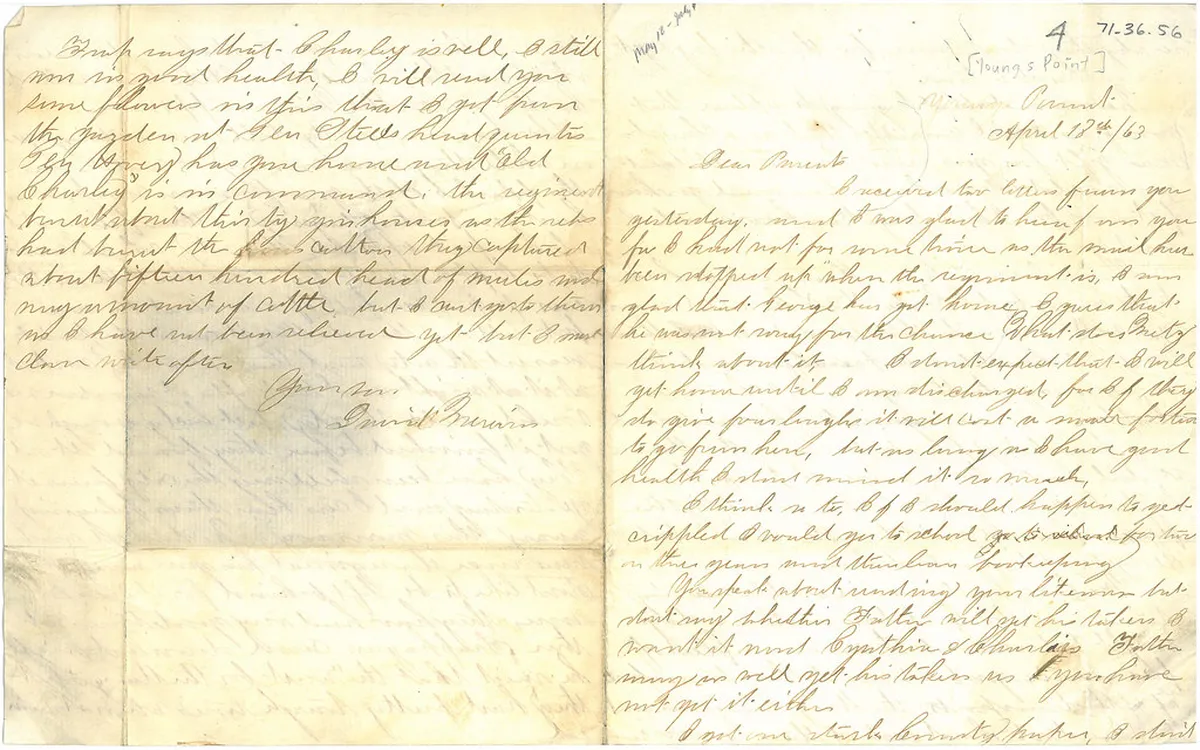 says that Charley is well, I still
am in good health, I will send you
some flowers in this that I got from
the garden at Gen Steels head quarters
Gen Hovey has gone home and "Old
Charley" is in command. the regiment
burnt about thirty gin houses as the rebs
had burnt the cotton they captured
about fifteen hundred head of mules and
any amount of cattle but I cant go to them
as I have not been relieved yet but I must
close write often
Your son
David
May 18 - July 4
4
71-36.56
[Young's Point]
Point
April 18th /63
Dear Parents
I received two letters from you
yesterday. and I was glad to hear from you
for I had not for some time as the mail has
been stopped up where the regiment is, I am
glad that George has got home, I guess that
he was not sorry for the chance What does
think about it. I dont expect that I will
get home until I am discharged, for If they
do give furloughs it will cost a small fortune
to go from here, but as long as I have good
health I dont mind it so much,
I think so to, If I should happen to get
crippled I would go to school for two
or three years and then learn bookeeping
You speak about sending your likeness but
dont say whether Father will get his taken I
want it and Cynthia & Charleys Father
may as well get his taken as you have
not got it either
I got one Stark County paper, I dont